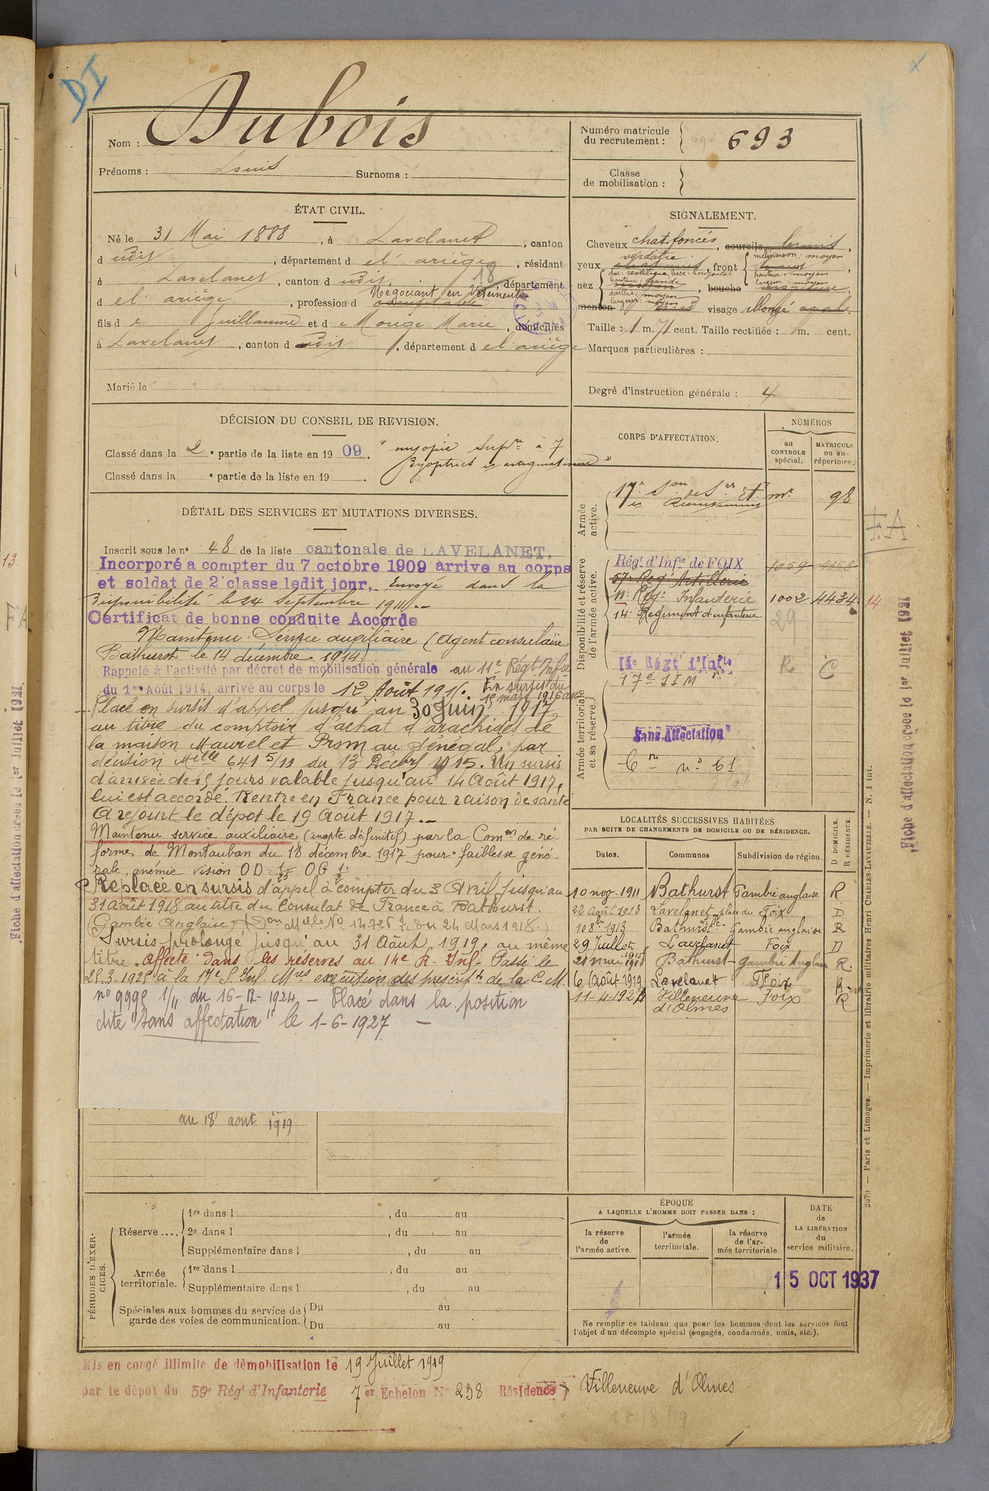 DI
Nom : Dubois
Prénoms : Louis Surnoms :
Numéro matricule du recrutement : 693
Classe de mobilisation :
ÉTAT CIVIL.
Né le 31 Mai 1888, à Lavelanet, canton
d udit, département d el ariège, résidant
à Lavelanet, canton d udit, département
18
Négociant en Vêtements
d el ariège, profession d
fils d e Guillaume et d e Mouge Marie, domiciliés
à Lavelanet, canton d udit, département d el ariège
Marié le
SIGNALEMENT.
Cheveux chat. foncés, sourcils
verdâtre
yeux, front
nez, bouche
menton, visage allongé
Taille : 1 m. 71 cent. Taille rectifiée : m. cent.
Marques particulières :
Degré d'instruction générale : 4
DÉCISION DU CONSEIL DE REVISION.
Classé dans la 2e partie de la liste en 1909 " myopie Supre à 7
dyoptries et astigmatisme "
Classé dans la e partie de la liste en 19
DÉTAIL DES SERVICES ET MUTATIONS DIVERSES.
Inscrit sous le no 48 de la liste cantonale de LAVELANET.
Incorporé a compter du 7 octobre 1909 arrive au corps
et soldat de 2e classe ledit jour, Envoyé dans la
Disponibilité le 24 Septembre 1911.-
Certificat de bonne conduite Accordé
Maintenu Service auxiliaire (agent consulaire
Bathurst le 14 décembre 1914)
Rappelé à l'activité par décret de mobilisation générale au 11e Régt Infie
du 1er Août 1914, arrivé au corps le 12 Août 1915. En sursis du
1er mars 1916 au
Placé en sursis d'appel jusqu'au 30 Juin 1917
au titre du comptoir d'achat d'arachides de
la maison Maurel et Prom au Sénégal, par
décision Mlle 641 5/11 du 13 Décbre 1915. Un sursis
d'arrivée de 15 jours valable jusqu'au 14 Août 1917,
lui est accordé. Rentre en France pour raison de santé
A rejoint le dépôt le 19 Août 1917.-
Maintenu service auxiliaire (inapte définitif) par la Comon de ré-
forme de Montauban du 18 décembre 1917 pour "faiblesse géné-
rale, anémie vision OD = OG
Replacé en sursis d'appel à compter du 3 Avril jusqu'au
31 août 1918 au titre du Consulat de France à Bathurst.
(Gambie Anglaise) (Don Mlle No 14726 du 24 Mars 1918.)
Sursis prolongé jusqu'au 31 Août 1919, au même
titre. Affecté dans les réserves au 14e R. Inf. Passé le
21.3.1925 à la 17e S Inf Mres exécution des prescriptns de la C.M.
no 9995 1/11 du 16-12-1924 – Placé dans la position
dite "Sans affectation" le 1-6-1927 –
au 18 aout 1919
CORPS D'AFFECTATION.
NUMÉROS
au CONTROLE spécial.
MATRICULE OU AU RÉPERTOIRE.
Armée active.
17e Son de Sres Et mres 98
Disponibilité et réserve de l'armée active.
Rég.t d'Infie de FOIX 1059
57e Rég. Artillerie
11e Rég. Infanterie 1002 4434
14e Régiment d'infanterie 29
11e Régt d'Infie R C
17e SIM
Armée territoriale et sa réserve.
"Sans Affectation"
no 61
LOCALITÉS SUCCESSIVES HABITÉES
PAR SUITE DE CHANGEMENTS DE DOMICILE OU DE RÉSIDENCE.
Dates. Communes Subdivision de région. D DOMICILE. R RÉSIDENCE.
10 nov. 1911 Bathurst Gambie anglaise R.
22 Août 1913 Lavelanet Foix D
10 8bre 1913 Bathurst Gambie anglaise R
29 Juillet 1915 Lavelanet Foix D
21 mai 1918 Bathurst Gambie Anglaise R.
6 Août 1919 Lavelanet Foix R.
11-4-1924 Villeneuve d'Olmes Foix R
PÉRIODES D'EXERCICES.
Réserve .... 1re dans l , du au
2e dans l , du au
Supplémentaire dans l , du au
Armée territoriale. 1re dans l , du au
Supplémentaire dans l , du au
Spéciales aux hommes du service de garde des voies de communication. Du au
Du au
ÉPOQUE
A LAQUELLE L'HOMME DOIT PASSER DANS :
la réserve de l'armée active.
l'armée territoriale.
la réserve de l'armée territoriale
DATE de LA LIBÉRATION du service militaire.
15 OCT 1937
Ne remplir ce tableau que pour les hommes dont les services font
l'objet d'un décompte spécial (engagés, condamnés, omis, etc.).
Mis en congé illimité de démobilisation le 19 Juillet 1919
par le dépôt du 59e Rég' d'Infanterie 7e Echelon No 238 Résidence Villeneuve d'Olmes
Fiche d'affectation créée le 1er Juillet 1921
Fiche d'affectation créée le 1er Juillet 1921
FA
Paris et Limoges. — Imprimerie et librairie militaires Henri CHARLES-LAVAUZELLE. — N. 1 int.